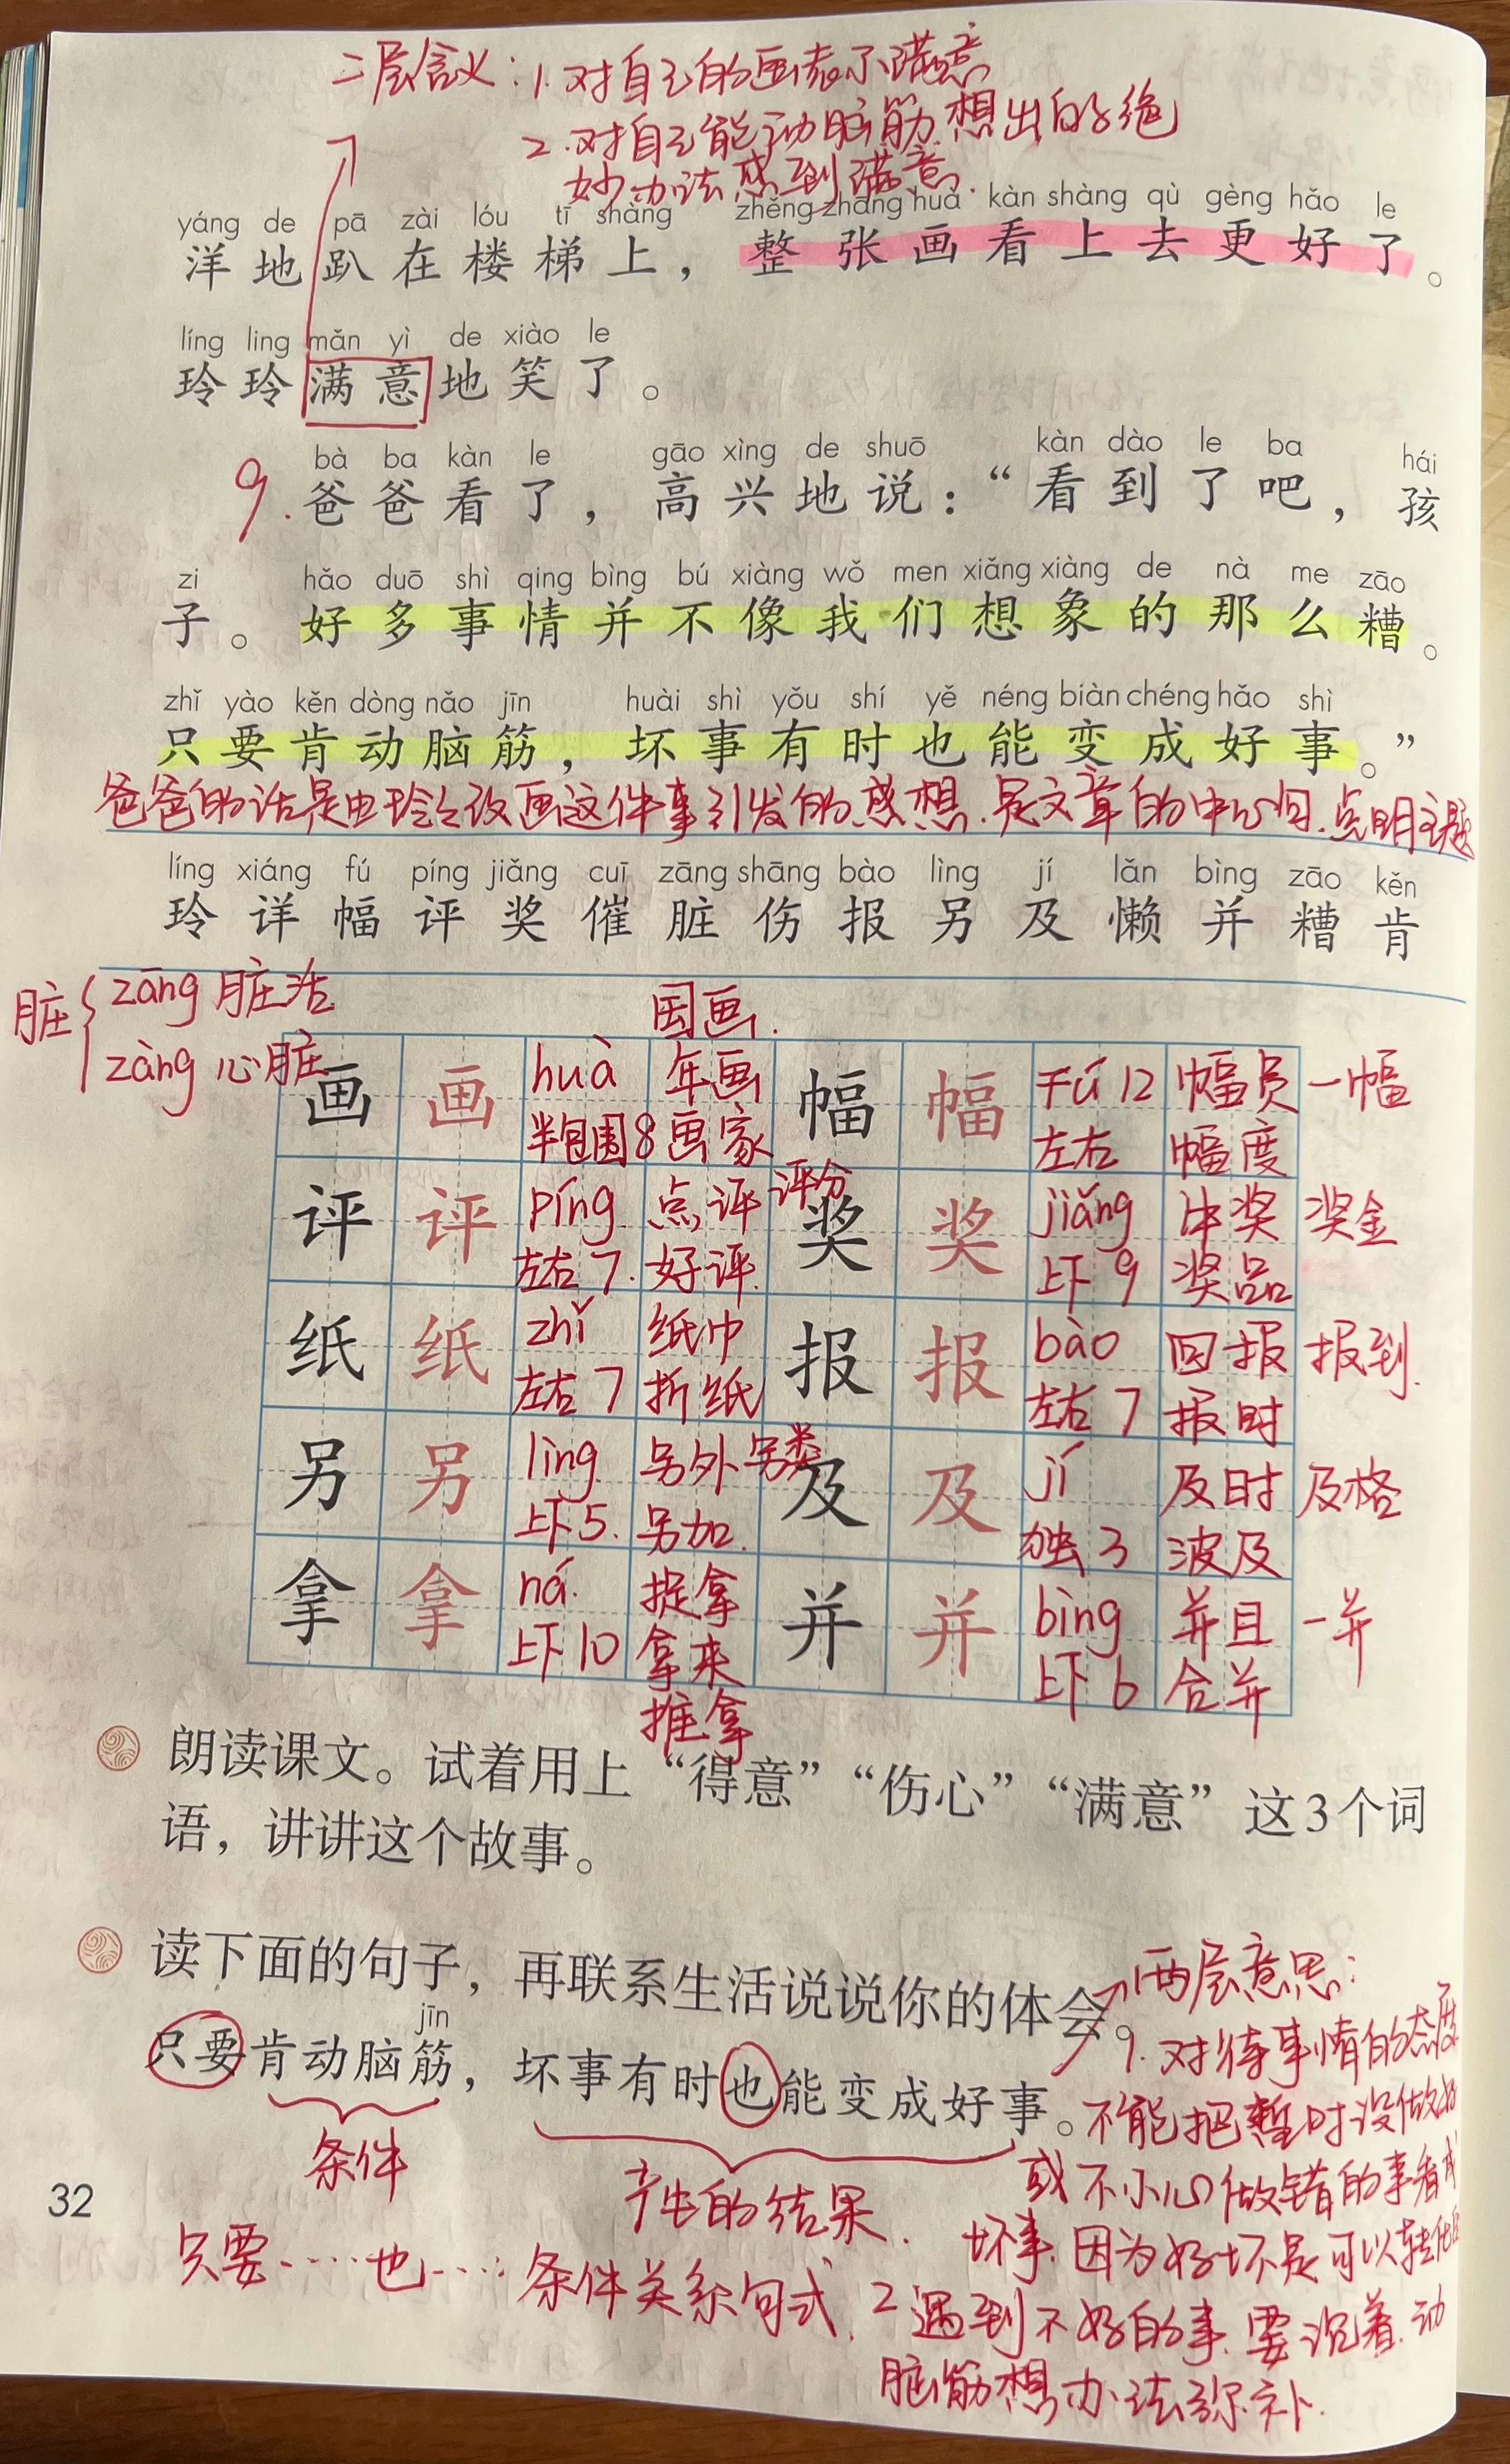 二层含义：1.对自己的画表示满意
2.对自己能动脑筋想出的绝
妙办法感到满意.
yáng de pā zài lóu tī shàng zhěng zhāng huà kàn shàng qù gèng hǎo le
洋地趴在楼梯上，整张画看上去更好了。
líng ling mǎn yì de xiào le
玲玲满意地笑了。
bà ba kàn le gāo xìng de shuō kàn dào le ba hái
9.爸爸看了，高兴地说：“看到了吧，孩
zi hǎo duō shì qing bìng bú xiàng wǒ men xiǎng xiàng de nà me zāo
子。好多事情并不像我们想象的那么糟。
zhǐ yào kěn dòng nǎo jīn huài shì yǒu shí yě néng biàn chéng hǎo shì
只要肯动脑筋，坏事有时也能变成好事。”
爸爸的话是由玲玲改画这件事引发的感想.是文章的中心句.点明主题
líng xiáng fú píng jiǎng cuī zāng shāng bào lìng jí lǎn bìng zāo kěn
玲详幅评奖催脏伤报另及懒并糟肯
脏{zāng 脏活
zàng 心脏
国画.
画 画 huà 年画 幅 幅 fú 12 幅员 一幅
半包围8 画家 左右 幅度
评 评 píng 点评 评分 奖 奖 jiǎng 中奖 奖金
左右7. 好评. 上下9 奖品
纸 纸 zhǐ 纸巾 报 报 bào 回报 报到.
左右7 折纸 左右7 报时
另 另 lìng 另外 另类 及 及 jí 及时 及格
上下5. 另加. 独3 波及
拿 拿 ná. 捉拿 并 并 bìng 并且 一并
上下10 拿来 上下6 合并
推拿
朗读课文。试着用上“得意”“伤心”“满意”这3个词
语，讲讲这个故事。
读下面的句子，再联系生活说说你的体会。
jīn
只要肯动脑筋，坏事有时也能变成好事。
条件
产生的结果.
只要……也……条件关系句式.
两层意思：
1.对待事情的态度
不能把暂时没做好
或不小心做错的事看成
坏事.因为好坏是可以转化的
2遇到不好的事.要沉着.动
脑筋想办法弥补.
32